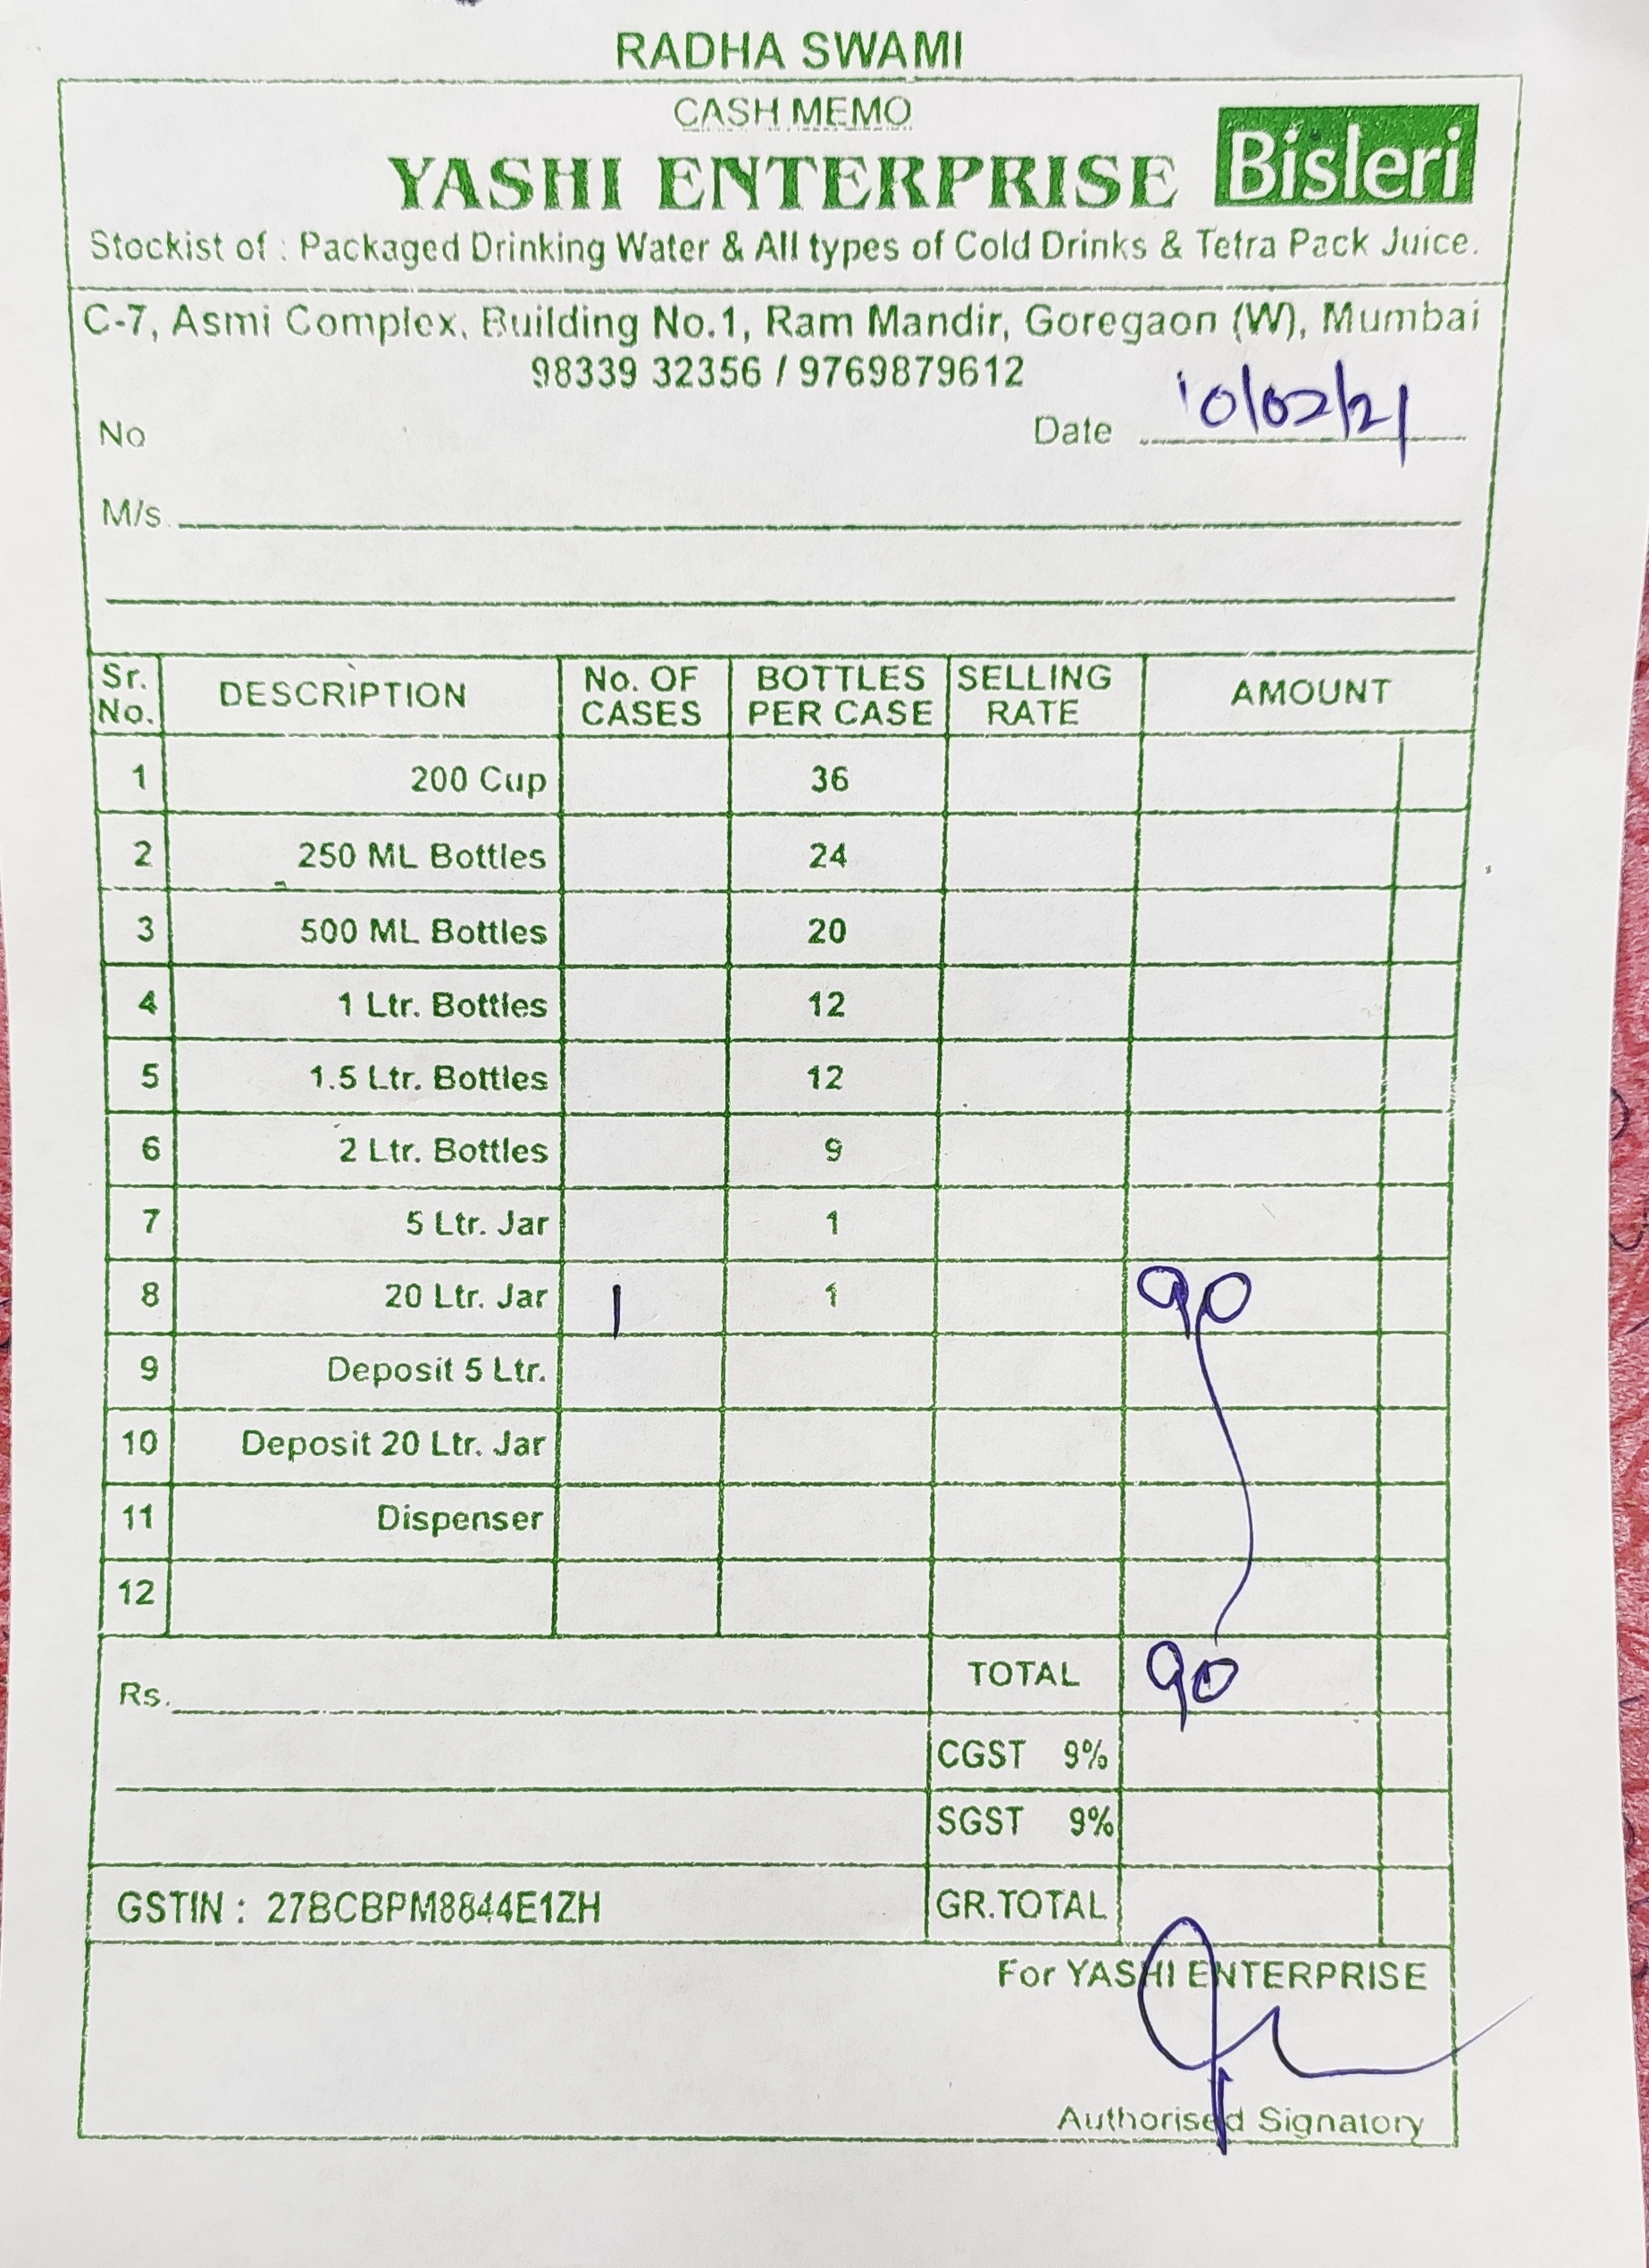 RADHA SWAMI
CASH MEMO
YASHI ENTERPRISE Bisleri
Stockist of : Packaged Drinking Water & All types of Cold Drinks & Tetra Pack Juice.
C-7, Asmi Complex, Building No.1, Ram Mandir, Goregaon (W), Mumbai
98339 32356 / 9769879612
No Date 10/02/21
M/s.
Sr. No. DESCRIPTION No. OF CASES BOTTLES PER CASE SELLING RATE AMOUNT
1 200 Cup 36
2 250 ML Bottles 24
3 500 ML Bottles 20
4 1 Ltr. Bottles 12
5 1.5 Ltr. Bottles 12
6 2 Ltr. Bottles 9
7 5 Ltr. Jar 1
8 20 Ltr. Jar 1 1 90
9 Deposit 5 Ltr.
10 Deposit 20 Ltr. Jar
11 Dispenser
12
Rs. TOTAL 90
CGST 9%
SGST 9%
GSTIN : 27BCBPM8844E1ZH GR.TOTAL
For YASHI ENTERPRISE
Authorised Signatory